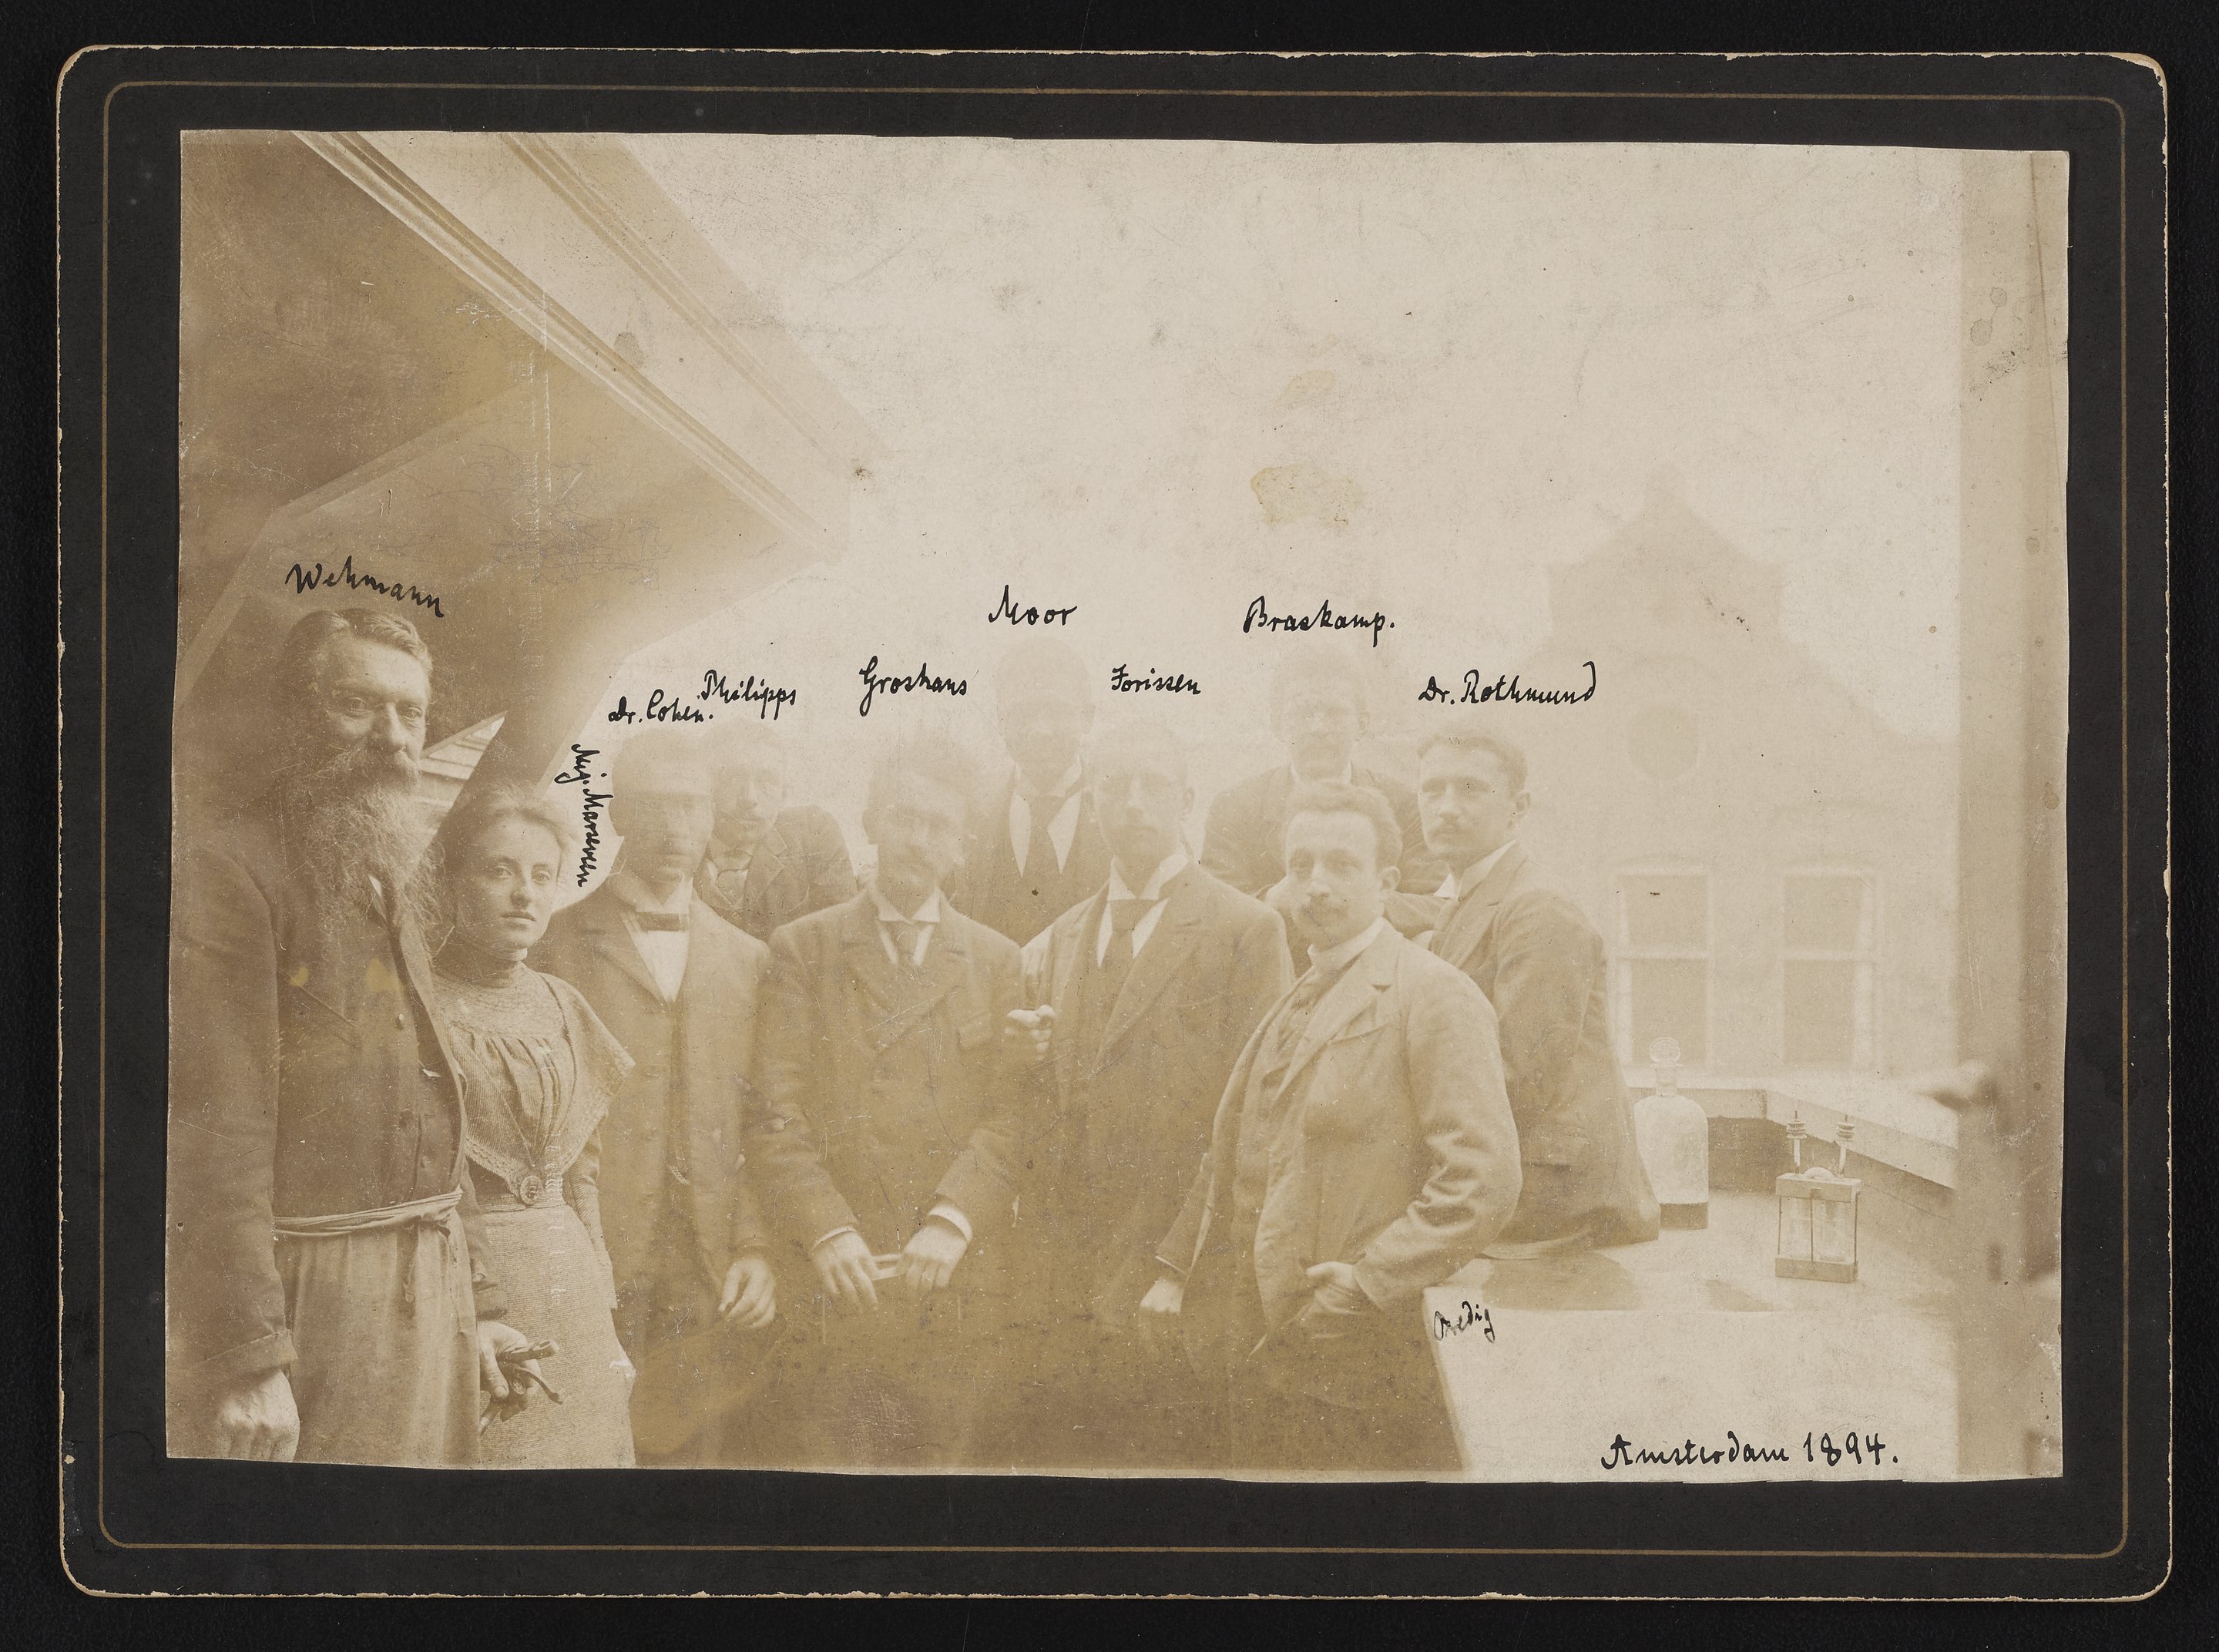 Wehmann
Moor
Braskamp.
Philipps
Groshans
Jorissen
Dr. Rothmund
Dr. Cohen.
Mej. Marseveen
Bredig
Amsterdam 1894.